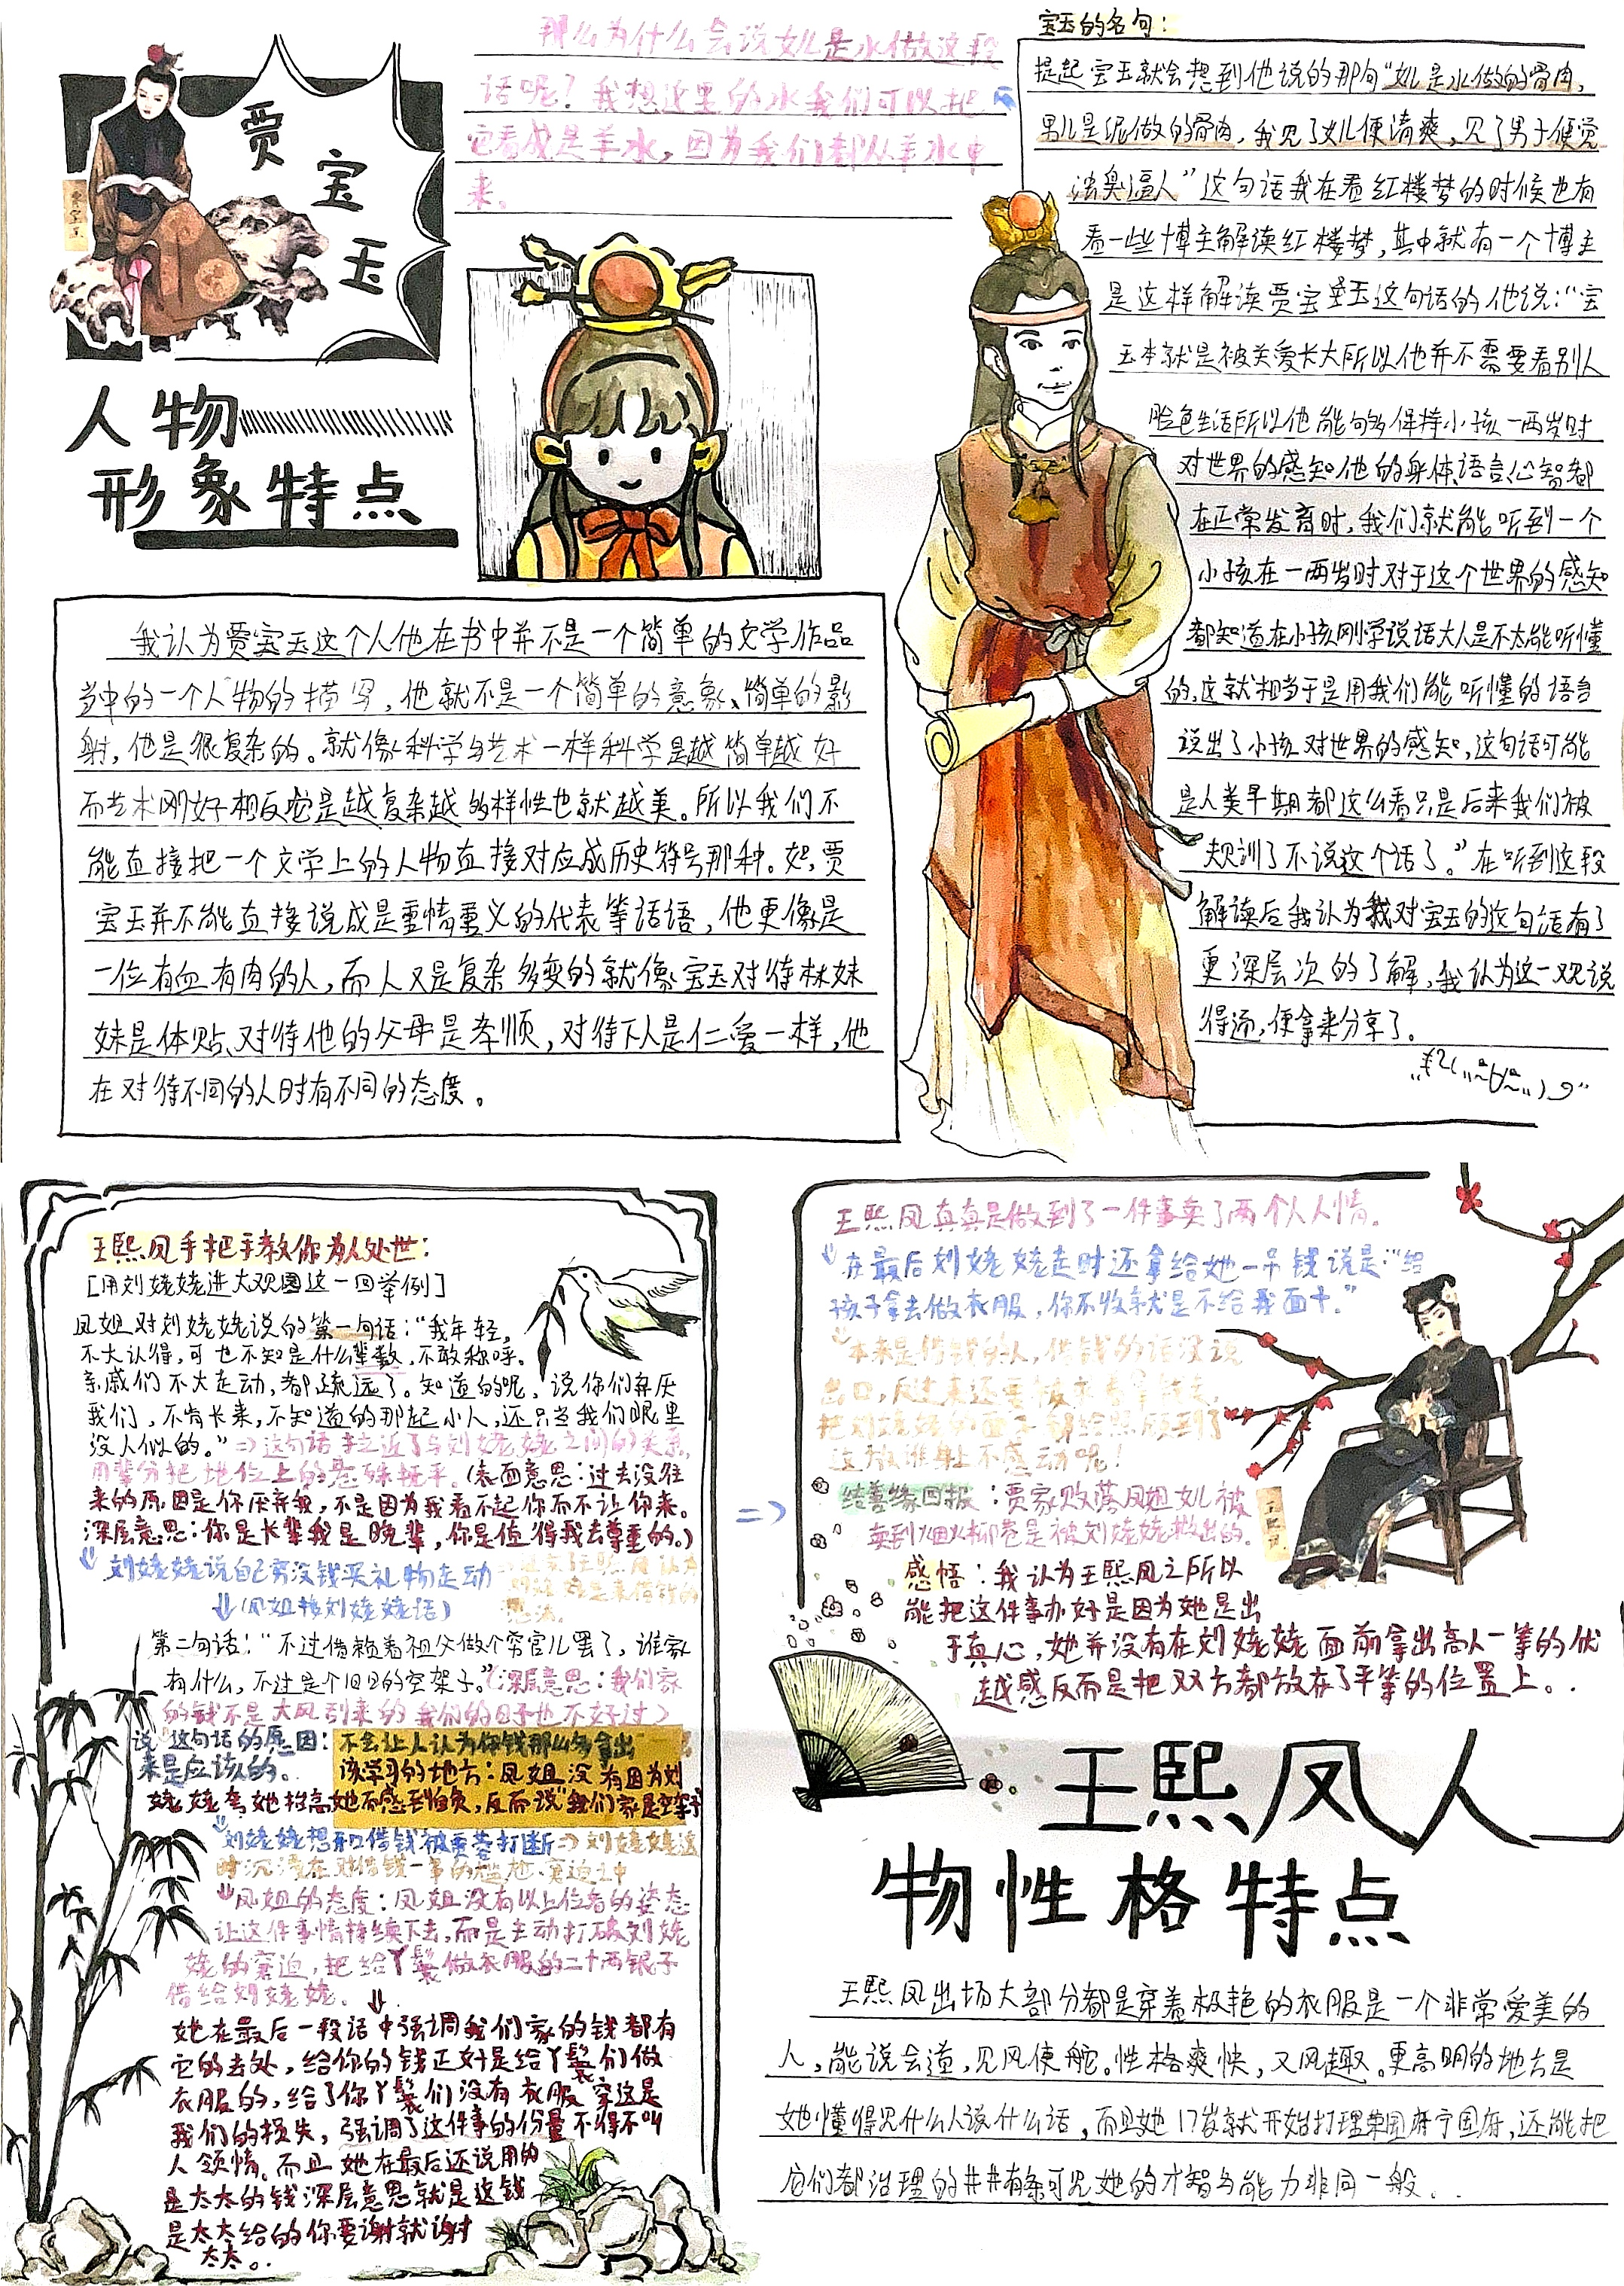 贾宝玉
贾宝玉
人物
形象特点
那么为什么会说女儿是水做这段
话呢？我想这里的水我们可以把
它看成是羊水，因为我们都从羊水中
来。
宝玉的名句：
提起宝玉就会想到他说的那句“女儿是水做的骨肉，
男儿是泥做的骨肉，我见了女儿便清爽，见了男子便觉
浊臭逼人”这句话我在看红楼梦的时候也有
看一些博主解读红楼梦，其中就有一个博主
是这样解读贾宝玉这句话的他说：“宝
玉本就是被关爱长大所以他并不需要看别人
脸色生活所以他能够保持小孩一两岁时
对世界的感知他的身体、语言、心智都
在正常发育时，我们就能听到一个
小孩在一两岁时对于这个世界的感知
都知道在小孩刚学说话大人是不太能听懂
的，这就相当于是用我们能听懂的语言
说出了小孩对世界的感知，这句话可能
是人类早期都这么看只是后来我们被
规训了不说这个话了。”在听到这段
解读后我认为我对宝玉的这句话有了
更深层次的了解，我认为这一观说
得通，便拿来分享了。
我认为贾宝玉这个人他在书中并不是一个简单的文学作品
当中的一个人物的描写，他就不是一个简单的意象、简单的影
射，他是很复杂的。就像科学与艺术一样科学是越简单越好
而艺术刚好相反它是越复杂越多样性也就越美。所以我们不
能直接把一个文学上的人物直接对应成历史符号那种。如，贾
宝玉并不能直接说成是重情重义的代表等话语，他更像是
一位有血有肉的人，而人又是复杂多变的就像宝玉对待林妹
妹是体贴、对待他的父母是孝顺，对待下人是仁爱一样，他
在对待不同的人时有不同的态度。
王熙凤手把手教你为人处世：
[用刘姥姥进大观园这一回举例]
凤姐对刘姥姥说的第一句话：“我年轻，
不大认得，可也不知是什么辈数，不敢称呼。
亲戚们不大走动，都疏远了。知道的呢，说你们弃厌
我们，不肯长来，不知道的那起小人，还只当我们眼里
没人似的。”⇒这句话拉近了与刘姥姥之间的关系，
用辈分把地位上的悬殊抚平。(表面意思：过去没往
来的原因是你厌弃我，不是因为我看不起你而不让你来。
深层意思：你是长辈我是晚辈，你是值得我去尊重的。)
刘姥姥说自己穷没钱买礼物走动
↓(凤姐接刘姥姥话)
第二句话：“不过借赖着祖父做个穷官儿罢了，谁家
有什么，不过是个旧日的空架子。”(深层意思：我们家
的钱不是大风刮来的我们的日子也不好过)
说这句话的原因：不会让人认为你钱那么多拿出
来是应该的。
该学习的地方：凤姐没有因为刘
姥姥夸她抬高她而感到自负，反而说“我们家是空架子
刘姥姥想开口借钱被贾蓉打断⇒刘姥姥这
时沉浸在对借钱一事的尴尬、窘迫之中
↓凤姐的态度：凤姐没有以上位者的姿态
让这件事情持续下去，而是主动打破刘姥
姥的窘迫，把给丫鬟做衣服的二十两银子
借给刘姥姥。↓
她在最后一段话中强调我们家的钱都有
它的去处，给你的钱正好是给丫鬟们做
衣服的，给了你丫鬟们没有衣服穿这是
我们的损失，强调了这件事的份量不得不叫
人领情。而且她在最后还说用的
是太太的钱深层意思就是这钱
是太太给的你要谢就谢
太太。
⇒
王熙凤真真是做到了一件事卖了两个人人情。
↓在最后刘姥姥走时还拿给她一吊钱说是：“给
孩子拿去做衣服，你不收就是不给我面子。”
↓本来是借钱的人，借钱的话没说
出口，反过来还要被
把刘姥姥的面子都给照顾到了
这放谁身上不感动呢！
结善缘回报：贾家败落凤姐女儿被
卖到烟火柳巷是被刘姥姥救出的。
感悟：我认为王熙凤之所以
能把这件事办好是因为她是出
于真心，她并没有在刘姥姥面前拿出高人一等的优
越感反而是把双方都放在了平等的位置上。
王熙凤
王熙凤人
物性格特点
王熙凤出场大部分都是穿着极艳的衣服是一个非常爱美的
人，能说会道，见风使舵。性格爽快，又风趣。更高明的地方是
她懂得见什么人说什么话，而且她17岁就开始打理荣国府宁国府，还能把
它们都治理的井井有条可见她的才智与能力非同一般。